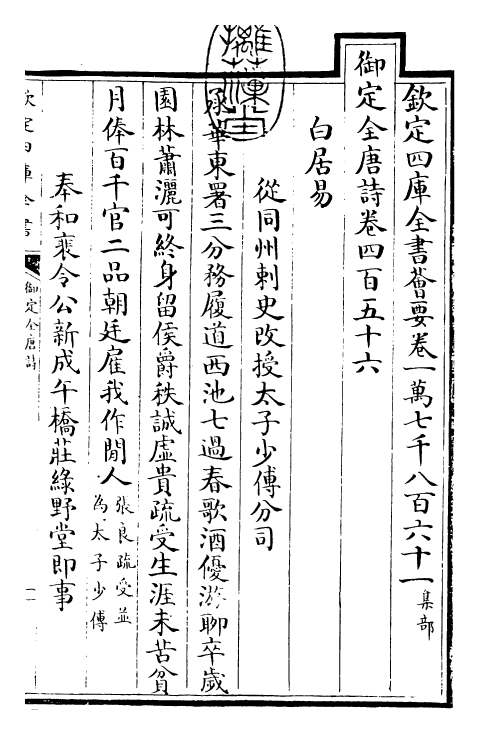 欽定四庫全書薈要卷一萬七千八百六十一集部
御定全唐詩卷四百五十六
白居易
從同州刺史改授太子少傅分司
承華東署三分務履道西池七過春歌酒優游聊卒歲
園林蕭灑可終身留侯爵秩誠虛貴疏受生涯未苦貧
月俸百千官二品朝廷雇我作閒人張良疏受並
為太子少傅
奉和裴令公新成午橋莊綠野堂即事
欽定四庫全書
御定全唐詩
一